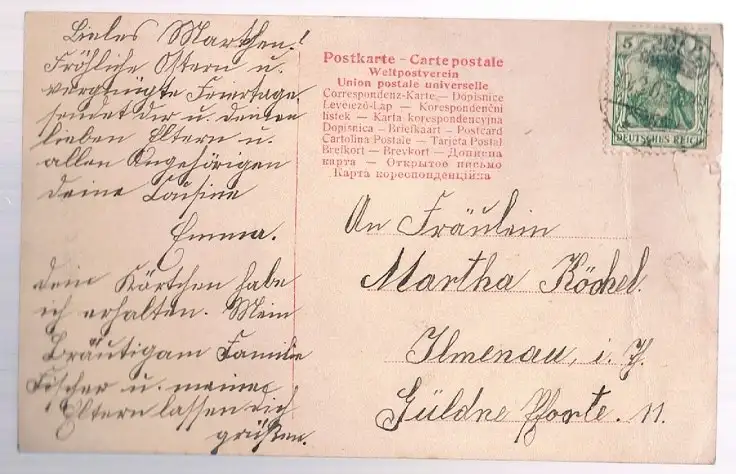 Liebes Marthchen!
Fröhliche Ostern u.
vergnügte Feiertage
sendet dir u. deinen
lieben Eltern u.
allen Angehörigen
deine Cousine
Emma.
Dein Kärtchen habe
ich erhalten. Mein
Bräutigam Familie
Fischer u. meine
Eltern lassen dich
grüßen.
Postkarte – Carte postale
Weltpostverein
Union postale universelle
Correspondenz-Karte – Dópisnice
Levelező-Lap – Korespondenční
listek – Karta korespondencyjna
Dopisnica – Briefkaart – Postcard
Cartolina Postale – Tarjeta Postal
Brefkort – Brevkort – Дописна
карта – Открытое письмо
Карта кореспонденційна
5
DEUTSCHES REICH
An Fräulein
Martha Köchel.
Ilmenau, i. Th.
Güldne Pforte. 11.